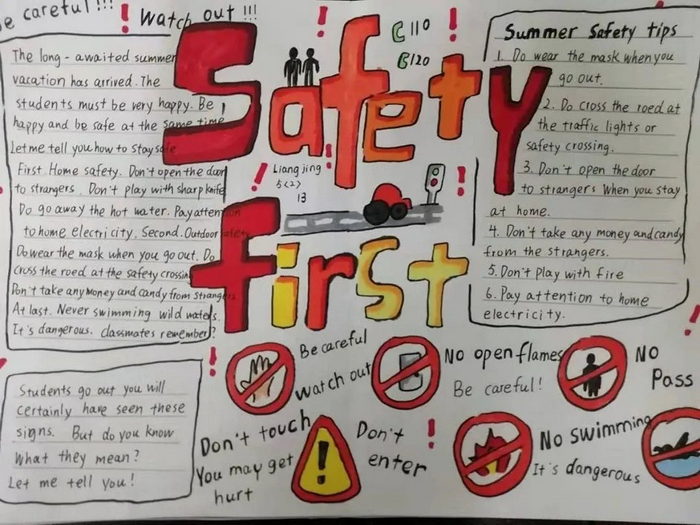 e careful!!!
Watch out !!!
Safety
First
C 110
B120
Liang jing
5<2>
13
The long-awaited summer
vacation has arrived. The
students must be very happy. Be
happy and be safe at the same time.
Let me tell you how to stay safe
First. Home safety. Don't open the door
to strangers. Don't play with sharp knife
Do go away the hot water. Pay attention
to home electricity. Second. Outdoor safety
Do wear the mask when you go out. Do
cross the roed at the safety crossing
Don't take any money and candy from strangers
At last. Never swimming wild waters.
It's dangerous. classmates remember?
Summer Safety tips
1. Do wear the mask when you
go out.
2. Do cross the roed at
the traffic lights or
safety crossing.
3. Don't open the door
to strangers when you stay
at home.
4. Don't take any money and candy
from the strangers.
5. Don't play with fire
6. Pay attention to home
electricity.
Students go out you will
certainly have seen these
signs. But do you know
what they mean?
Let me tell you!
Be careful
watch out
Don't touch
You may get
hurt
!
Don't
enter
No open flames
Be careful!
NO
Pass
No swimming
It's dangerous